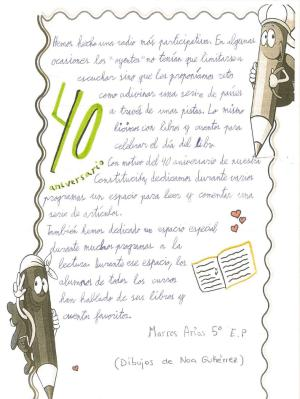 Hemos hecho una radio más participativa. En algunas
ocasiones los "agentes" no tenían que limitarse a
escuchar sino que les proponíamos reto
como adivinar una serie de países
a través de unas pistas. Lo mismo
hicimos con libros y cuentos para
celebrar el día del libro.
40
aniversario
Con motivo del 40 aniversario de nuestra
Constitución, dedicamos durante varios
programas un espacio para leer y comentar una
serie de artículos.
También hemos dedicado un espacio especial
durante muchos programas a la
lectura. Durante ese espacio, los
alumnos de todos los cursos
han hablado de sus libros y
cuentos favoritos.
Marcos Arias 5º E.P
(Dibujos de Noa Gutiérrez)